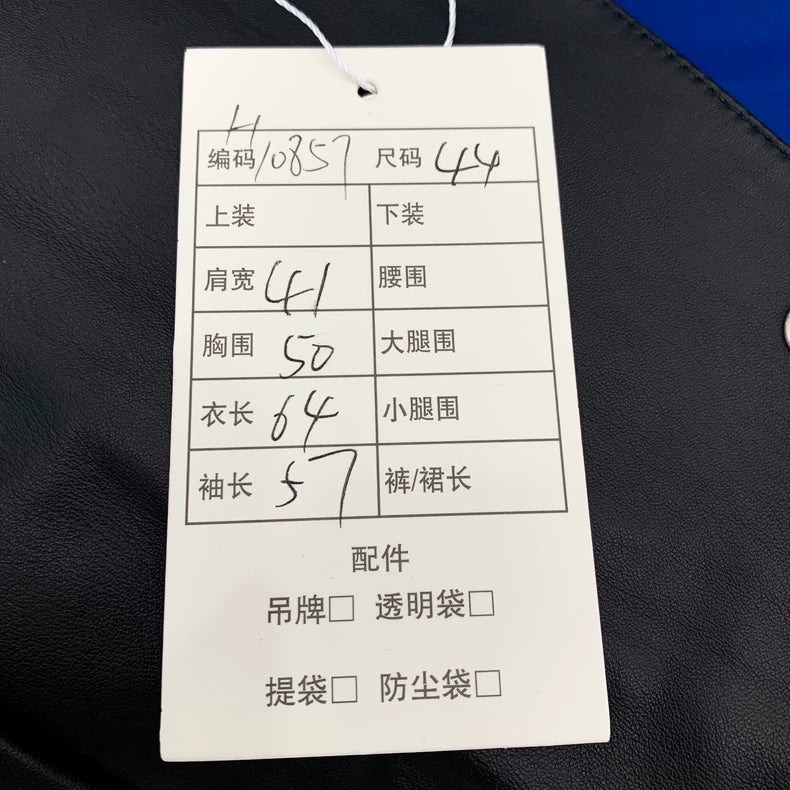 H
编码10857 尺码 44
上装 下装
肩宽 41 腰围
胸围 50 大腿围
衣长 64 小腿围
袖长 57 裤/裙长
配件
吊牌□ 透明袋□
提袋□ 防尘袋□